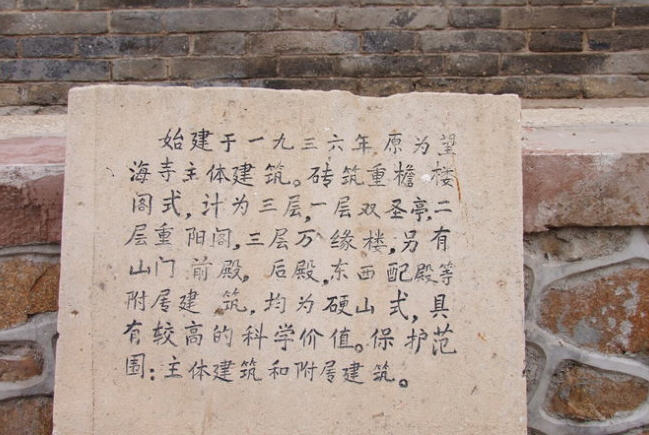 始建于一九三六年,原为望
海寺主体建筑。砖筑重檐楼
阁式,计为三层,一层双圣亭,二
层重阳阁,三层万缘楼,另有
山门前殿,后殿,东西配殿等
附居建筑,均为硬山式,具
有较高的科学价值。保护范
围:主体建筑和附居建筑。